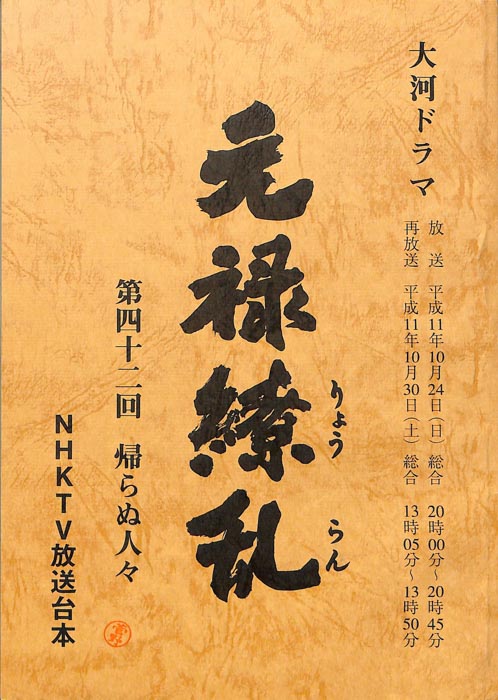 大河ドラマ
放送 平成11年10月24日(日) 総合 20時00分〜20時45分
再放送 平成11年10月30日(土) 総合 13時05分〜13時50分
元禄繚乱
りょうらん
第四十二回 帰らぬ人々
NHKTV放送台本